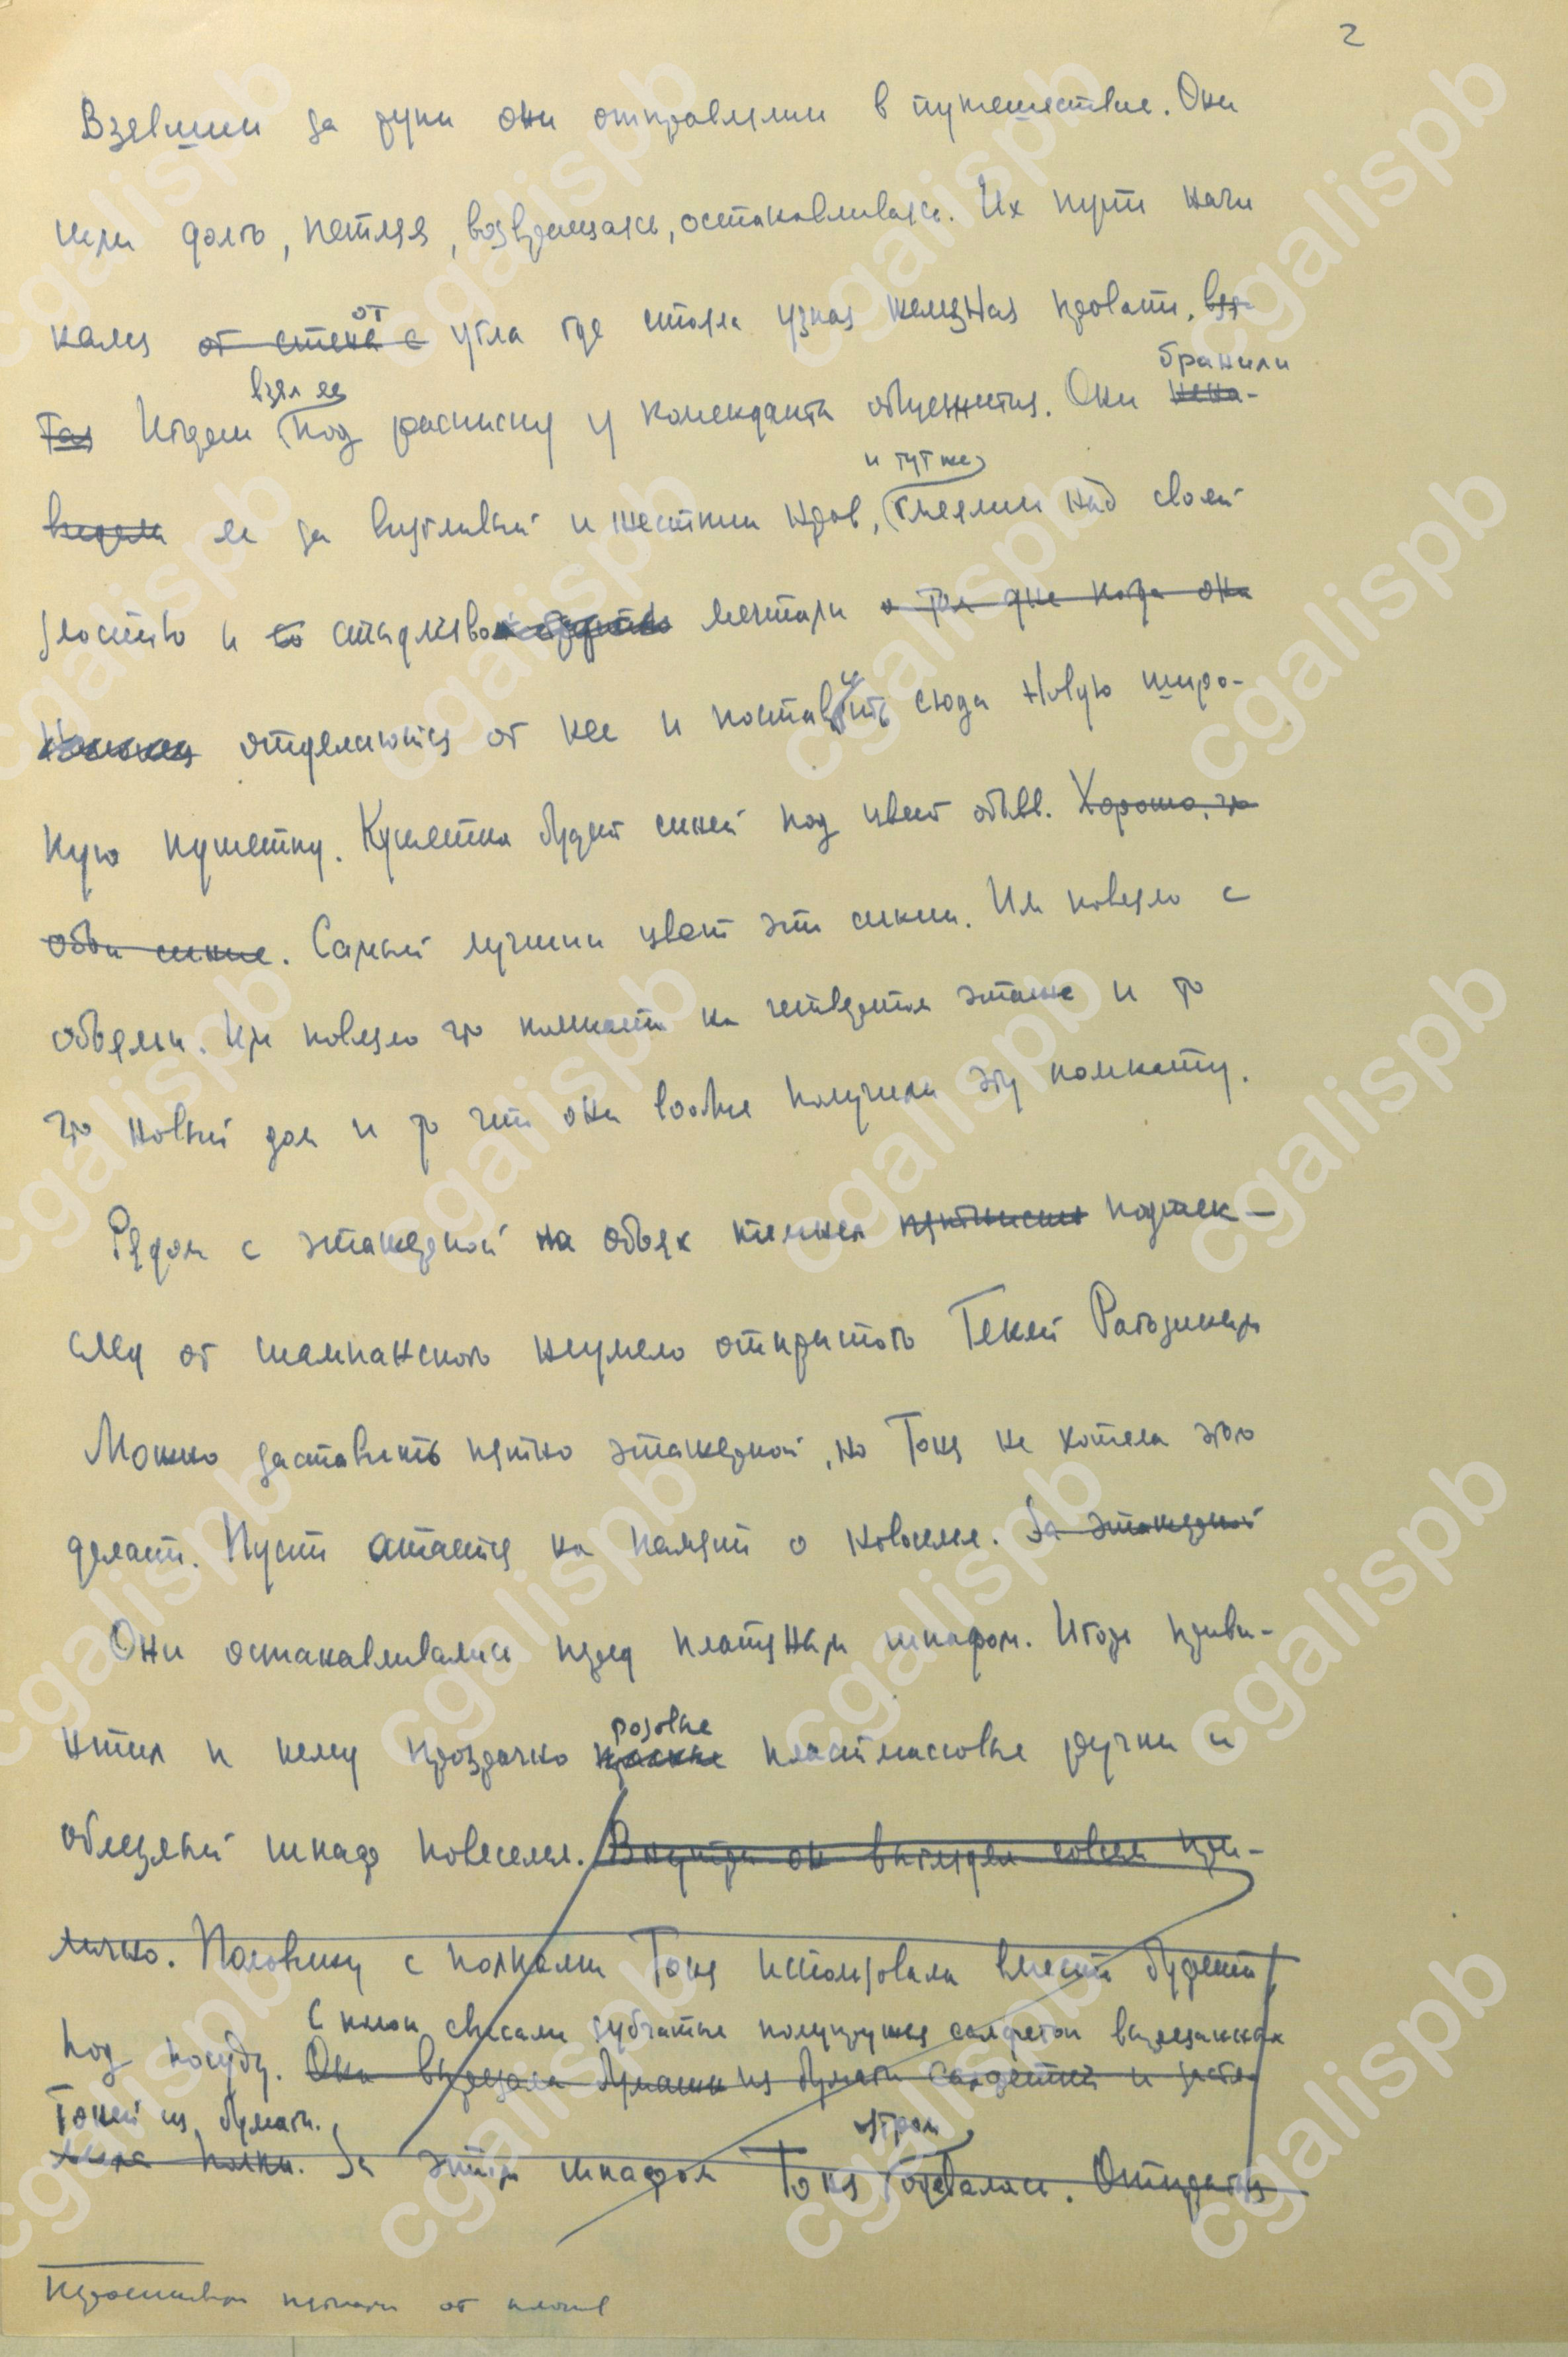 2
Взявшись за руки они отправлялись в путешествие. Они
шли долго, петляя, возвращаясь, останавливаясь. Их путь начи
нался от стены с от угла где стояла узкая железная кровать, вз-
тая Игорем взял ее под расписку у коменданта общежития. Они нена- бранили
видели ее за визгливый и жесткий нрав, и тут же смеялись над своей
злостью и со сладостью мечтали о том дне когда они
отделаются от нее и поставят сюда новую широ-
кую кушетку. Кушетка будет синей под цвет обоев. Хорошо, что
обои синие. Самый лучший цвет это синий. Им повезло с
обоями. Им повезло что комната на четвертом этаже и то
что новый дом и то что они вообще получили эту комнату.
Рядом с этажеркой на обоях темнел подтек –
след от шампанского неумело открытого Геней
Можно заставить пятно этажеркой, но Тоня не хотела этого
делать. Пусть останется на память о новоселье. За этажеркой
Они останавливались перед платяным шкафом. Игорь приви-
нтил к нему прозрачно розовые красные пластмассовые ручки и
облезлый шкаф повеселел. Внутри он выглядел совсем при-
лично. Половину с полками Тоня использовала вместо буфета
под посуду. С полок свисали зубчатые полукружья салфеток вырезанных
Она вырезала из бумаги салфетки и засте-
Тоней из бумаги.
лила полки. За этим шкафом Тоня утром одевалась. Открытая